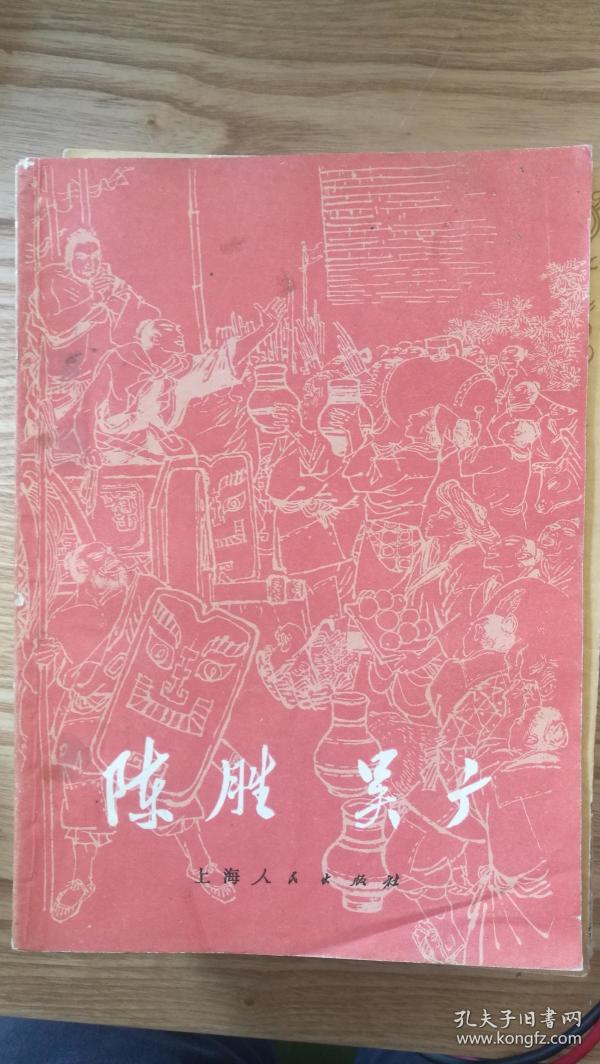 陈胜 吴广
上海人民出版社
孔夫子旧书网
www.kongfz.com